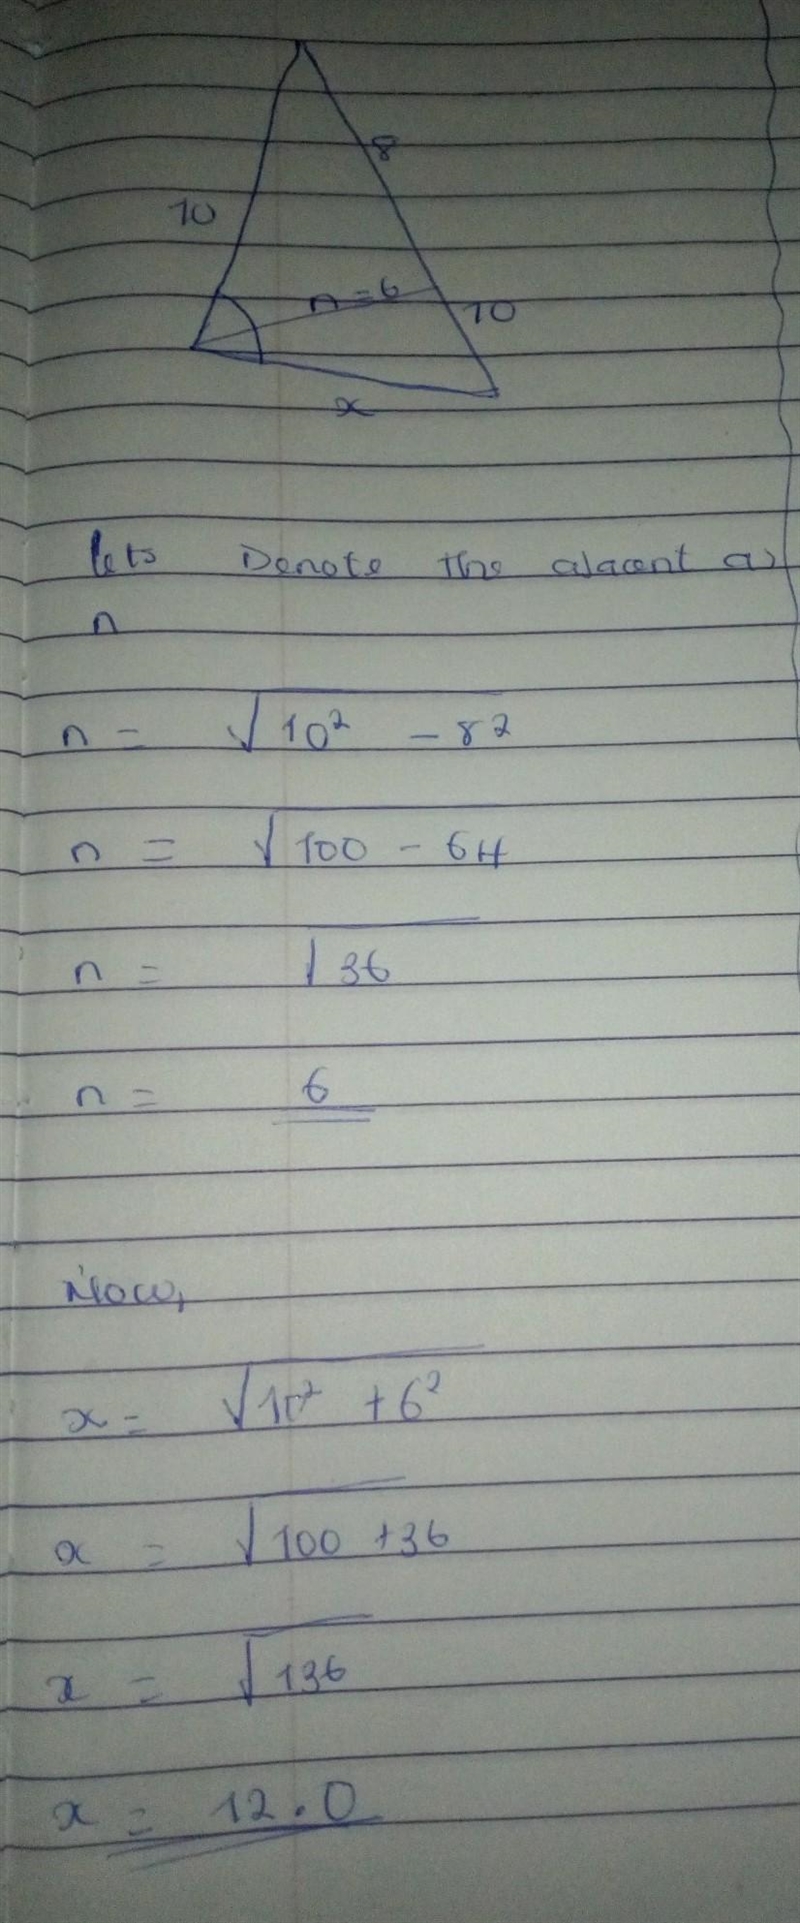 8
10
n = 6
10
x
lets Denote the ajacent as
n
n = √10² - 8²
n = √100 - 64
n = √36
n = 6
Now,
x = √10² + 6²
x = √100 + 36
x = √136
x = 12.0